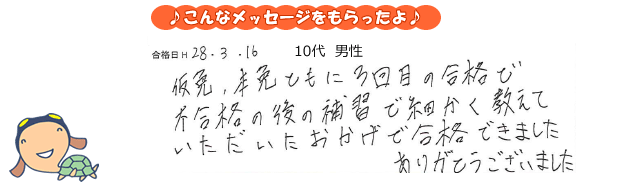 ♪こんなメッセージをもらったよ♪
合格日H28.3.16 10代 男性
仮免,本免ともに3回目の合格で
不合格の後の補習で細かく教えて
いただいたおかげで合格できました
ありがとうございました